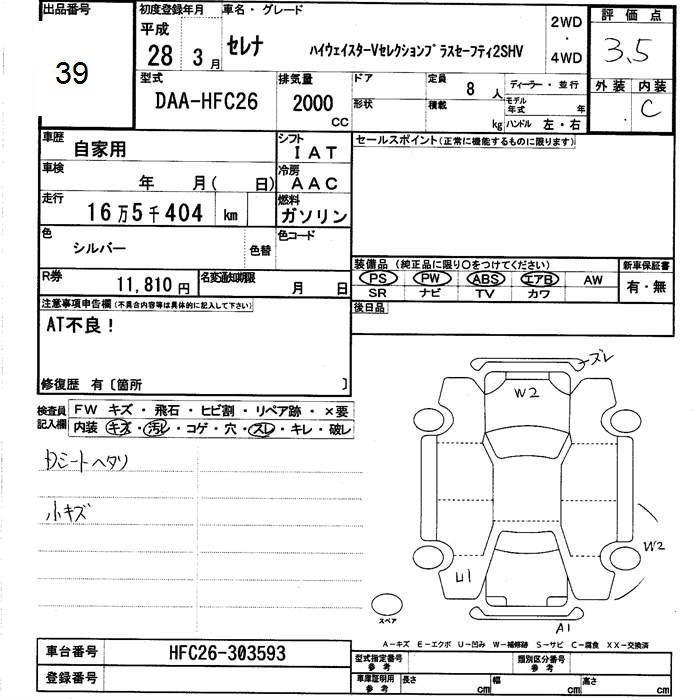 出品番号
39
初度登録年月
平成
28 3月
車名・グレード
セレナ ハイウェイスターVセレクションプラスセーフティ2SHV
2WD
・
4WD
評価点
3.5
外装 内装
C
型式
DAA-HFC26
排気量
2000
CC
ドア
形状
定員
8 人
積載
kg
ディーラー・並行
モデル年式 年
ハンドル 左・右
車歴
自家用
シフト
IAT
セールスポイント(正常に機能するものに限ります)
車検
年 月( 日)
冷房
AAC
走行
16万5千404 km
燃料
ガソリン
色
シルバー
色替
色コード
R券
11,810円
名変通知期限
月 日
装備品 (純正品に限り〇をつけてください)
PS PW ABS エアB AW
SR ナビ TV カワ
新車保証書
有・無
後日品
注意事項申告欄(不具合内容等は具体的に記入して下さい)
AT不良!
修復歴 有〔箇所 〕
検査員
記入欄
FW キズ・飛石・ヒビ割・リペア跡・×要
内装 キズ・汚レ・コゲ・穴・スレ・キレ・破レ
Dシートヘタリ
小キズ
ズレ
W2
W2
U1
A1
スペア
A-キズ E-エクボ U-凹み W-補修跡 S-サビ C-腐食 XX-交換済
車台番号
HFC26-303593
登録番号
型式指定番号
参考
類別区分番号
参考
車庫証明用
参考
長さ cm
幅 cm
高さ cm